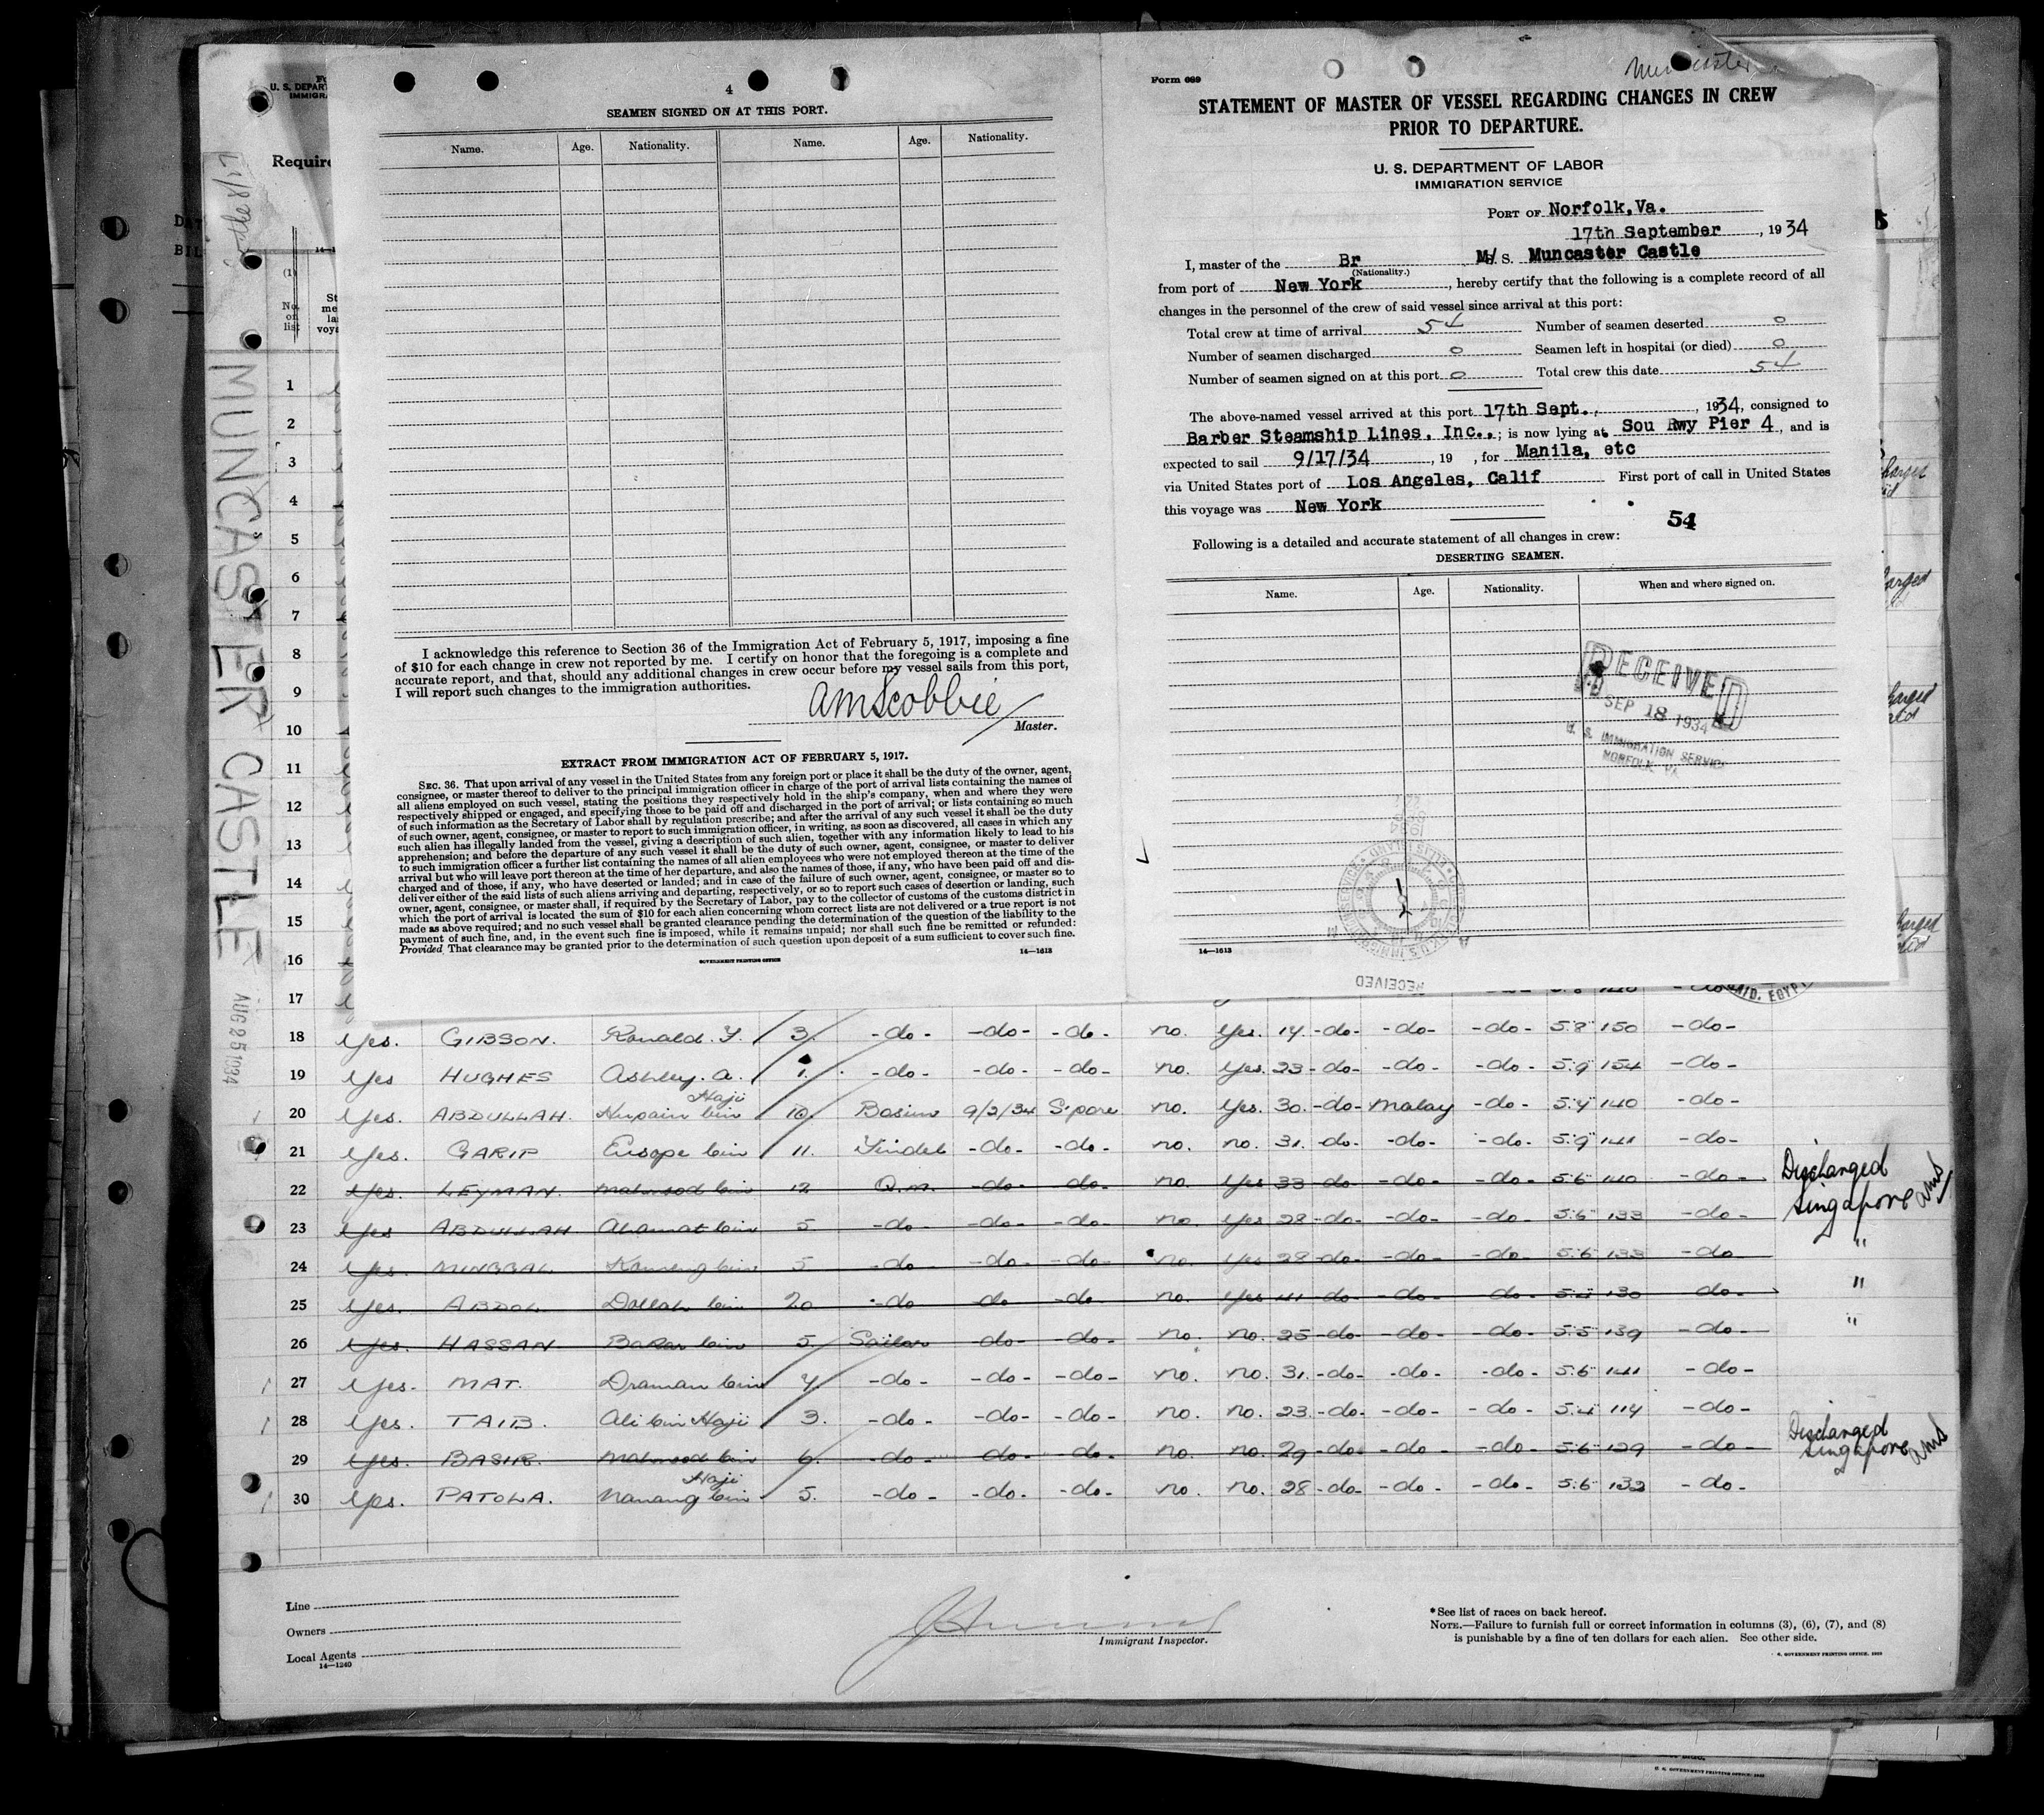 4
SEAMEN SIGNED ON AT THIS PORT.
Name. Age. Nationality. Name. Age. Nationality.
I acknowledge this reference to Section 36 of the Immigration Act of February 5, 1917, imposing a fine
of $10 for each change in crew not reported by me. I certify on honor that the foregoing is a complete and
accurate report, and that, should any additional changes in crew occur before my vessel sails from this port,
I will report such changes to the immigration authorities.
AMScobbie
Master.
EXTRACT FROM IMMIGRATION ACT OF FEBRUARY 5, 1917.
SEC. 36. That upon arrival of any vessel in the United States from any foreign port or place it shall be the duty of the owner, agent,
consignee, or master thereof to deliver to the principal immigration officer in charge of the port of arrival lists containing the names of
all aliens employed on such vessel, stating the positions they respectively hold in the ship's company, when and where they were
respectively shipped or engaged, and specifying those to be paid off and discharged in the port of arrival; or lists containing so much
of such information as the Secretary of Labor shall by regulation prescribe; and after the arrival of any such vessel it shall be the duty
of such owner, agent, consignee, or master to report to such immigration officer, in writing, as soon as discovered, all cases in which any
such alien has illegally landed from the vessel, giving a description of such alien, together with any information likely to lead to his
apprehension; and before the departure of any such vessel it shall be the duty of such owner, agent, consignee, or master to deliver
to such immigration officer a further list containing the names of all alien employees who were not employed thereon at the time of the
arrival but who will leave port thereon at the time of her departure, and also the names of those, if any, who have been paid off and dis-
charged and of those, if any, who have deserted or landed; and in case of the failure of such owner, agent, consignee, or master so to
deliver either of the said lists of such aliens arriving and departing, respectively, or so to report such cases of desertion or landing, such
owner, agent, consignee, or master shall, if required by the Secretary of Labor, pay to the collector of customs of the customs district in
which the port of arrival is located the sum of $10 for each alien concerning whom correct lists are not delivered or a true report is not
made as above required; and no such vessel shall be granted clearance pending the determination of the question of the liability to the
payment of such fine, and, in the event such fine is imposed, while it remains unpaid; nor shall such fine be remitted or refunded:
Provided That clearance may be granted prior to the determination of such question upon deposit of a sum sufficient to cover such fine.
GOVERNMENT PRINTING OFFICE 14—1613
Form 689
Muncaster
STATEMENT OF MASTER OF VESSEL REGARDING CHANGES IN CREW
PRIOR TO DEPARTURE.
U. S. DEPARTMENT OF LABOR
IMMIGRATION SERVICE
PORT OF Norfolk, Va.
17th September, 1934
I, master of the Br M/S. Muncaster Castle
(Nationality.)
from port of New York, hereby certify that the following is a complete record of all
changes in the personnel of the crew of said vessel since arrival at this port:
Total crew at time of arrival 54 Number of seamen deserted 0
Number of seamen discharged 0 Seamen left in hospital (or died) 0
Number of seamen signed on at this port 0 Total crew this date 54
The above-named vessel arrived at this port 17th Sept., 1934, consigned to
Barber Steamship Lines, Inc.,; is now lying at Sou Rwy Pier 4, and is
expected to sail 9/17/34, 19 , for Manila, etc
via United States port of Los Angeles, Calif First port of call in United States
this voyage was New York
54
Following is a detailed and accurate statement of all changes in crew:
DESERTING SEAMEN.
Name. Age. Nationality. When and where signed on.
RECEIVED
SEP 18 1934
U. S. IMMIGRATION SERVICE
NORFOLK VA
14—1613
RECEIVED
U. S. DEPAR
IMMIGRA
Require
(1)
No. on list
MUNCASTER CASTLE
AUG 25 1934
1
2
3
4
5
6
7
8
9
10
11
12
13
14
15
16
17
18 Yes. GIBSON. Ronald. Y. 3. -do- -do- -do- no. Yes. 14. -do- -do- -do- 5.8 150 -do-
19 Yes HUGHES Ashley. A. 1. -do- -do- -do- no. Yes. 23 -do- -do- -do- 5.9 154 -do-
20 Yes. ABDULLAH. Haji bin 10. 9/2/34 S'pore no. Yes. 30. -do- Malay -do- 5.4 140 -do-
21 Yes. GARIP Eusope bin 11. Tindel -do- -do- no. no. 31. -do- -do- -do- 5.9 141 -do-
22 Yes. LEYMAN. Mahmood bin 12 Q.M. -do- -do- no. Yes 33 do -do- -do- 5.6 140 -do- Discharged Singapore AMS
23 Yes ABDULLAH Ahamat bin 5 -do- -do- -do- no. Yes 28 -do- -do- -do- 5.6 133 -do-
24 Yes. MINGGAL bin 5 -do- -do- -do- no. Yes 28 -do- -do- -do- 5.6 133 -do- "
25 Yes. ABDOL Dollah bin 20 -do -do -do- no. Yes 41 do- -do- -do- 130 do- "
26 Yes. HASSAN Bakar bin 5. Sailor -do- -do- no. no. 25 -do- -do- -do- 5.5 139 -do- "
27 Yes. MAT. Draman bin 4. -do- -do- -do- no. no. 31. -do- -do- -do- 5.6 141 -do-
28 Yes. TAIB. Ali bin Haji 3. -do- -do- -do- no. no. 23. -do- -do- -do- 5.4 114 -do-
29 Yes. BASIR. Mahmood bin 6. -do- -do- -do- no. no. 29 -do- -do- -do- 5.6 129 -do- Discharged Singapore AMS
30 Yes. PATOLA. Nanang Haji bin 5. -do- -do- -do- no. no. 28 -do- -do- -do- 5.6 132 -do-
Line
Owners
Local Agents
14—1240
Immigrant Inspector.
*See list of races on back hereof.
NOTE.—Failure to furnish full or correct information in columns (3), (6), (7), and (8)
is punishable by a fine of ten dollars for each alien. See other side.